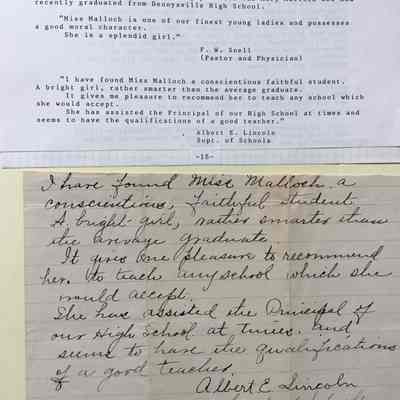 recently graduated from Dennysville High School.
"Miss Malloch is one of our finest young ladies and possesses
a good moral character.
She is a splendid girl."
F. W. Snell
(Pastor and Physician)
"I have found Miss Malloch a conscientious faithful student.
A bright girl, rather smarter than the average graduate.
It gives me pleasure to recommend her to teach any school which
she would accept.
She has assisted the Principal of our High School at times and
seems to have the qualifications of a good teacher."
Albert E. Lincoln
Supt. of Schools
-18-
I have found Miss Malloch a
conscientious, faithful student
A bright girl, rather smarter than
the average graduate.
It gives one pleasure to recommend
her to teach any school which she
would accept.
She has assisted the Principal of
our High School at times and
seems to have the qualifications
of a good teacher.
Albert E. Lincoln